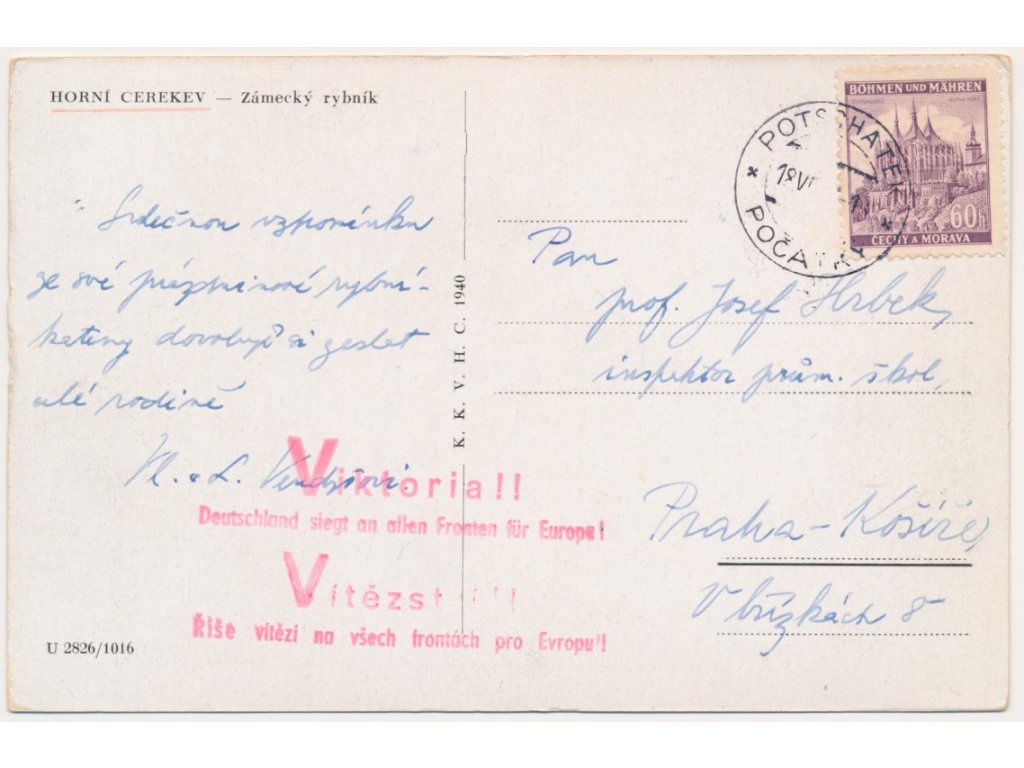 HORNÍ CEREKEV — Zámecký rybník
BÖHMEN UND MÄHREN
60h
ČECHY A MORAVA
POTSCHATEK
POČÁTKY
Srdečnou vzpomínku
ze své prázdninové rybni-
kařiny dovolují si zaslat
celé rodině
Vl. a L.
K. K. V. H. C. 1940
Pan
prof. Josef Hrbek,
inspektor prům. škol,
Praha-Košíře,
V břízkách 8
Viktoria!!
Deutschland siegt an allen Fronten für Europa!
Vítězst !!
Říše vítězí na všech frontách pro Evropu!
U 2826/1016